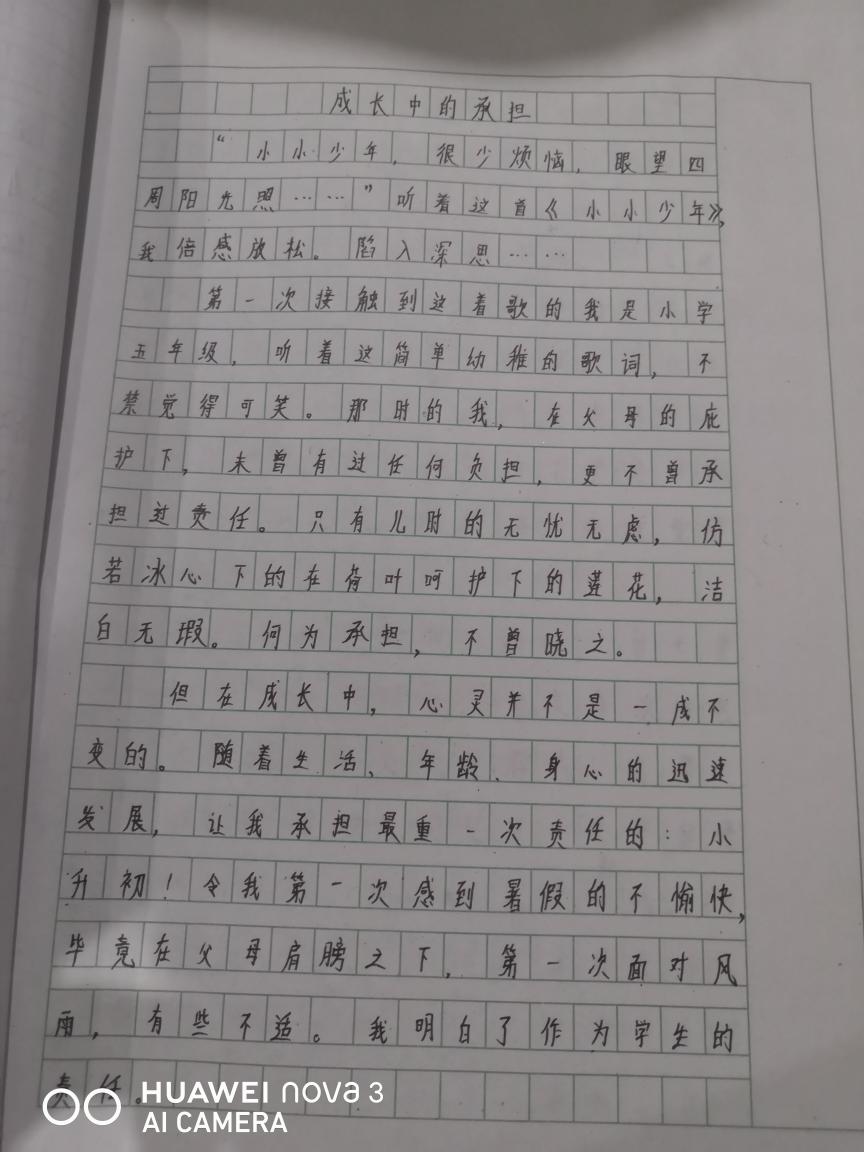 成长中的承担
“小小少年，很少烦恼，眼望四
周阳光照……”听着这首《小小少年》，
我倍感放松。陷入深思……
第一次接触到这着歌的我是小学
五年级，听着这简单幼稚的歌词，不
禁觉得可笑。那时的我，在父母的庇
护下，未曾有过任何负担，更不曾承
担过责任。只有儿时的无忧无虑，仿
若冰心下的在荷叶呵护下的莲花，洁
白无瑕。何为承担，不曾晓之。
但在成长中，心灵并不是一成不
变的。随着生活、年龄、身心的迅速
发展，让我承担最重一次责任的：小
升初！令我第一次感到暑假的不愉快，
毕竟在父母肩膀之下，第一次面对风
雨，有些不适。我明白了作为学生的
责任。
HUAWEI nova 3
AI CAMERA